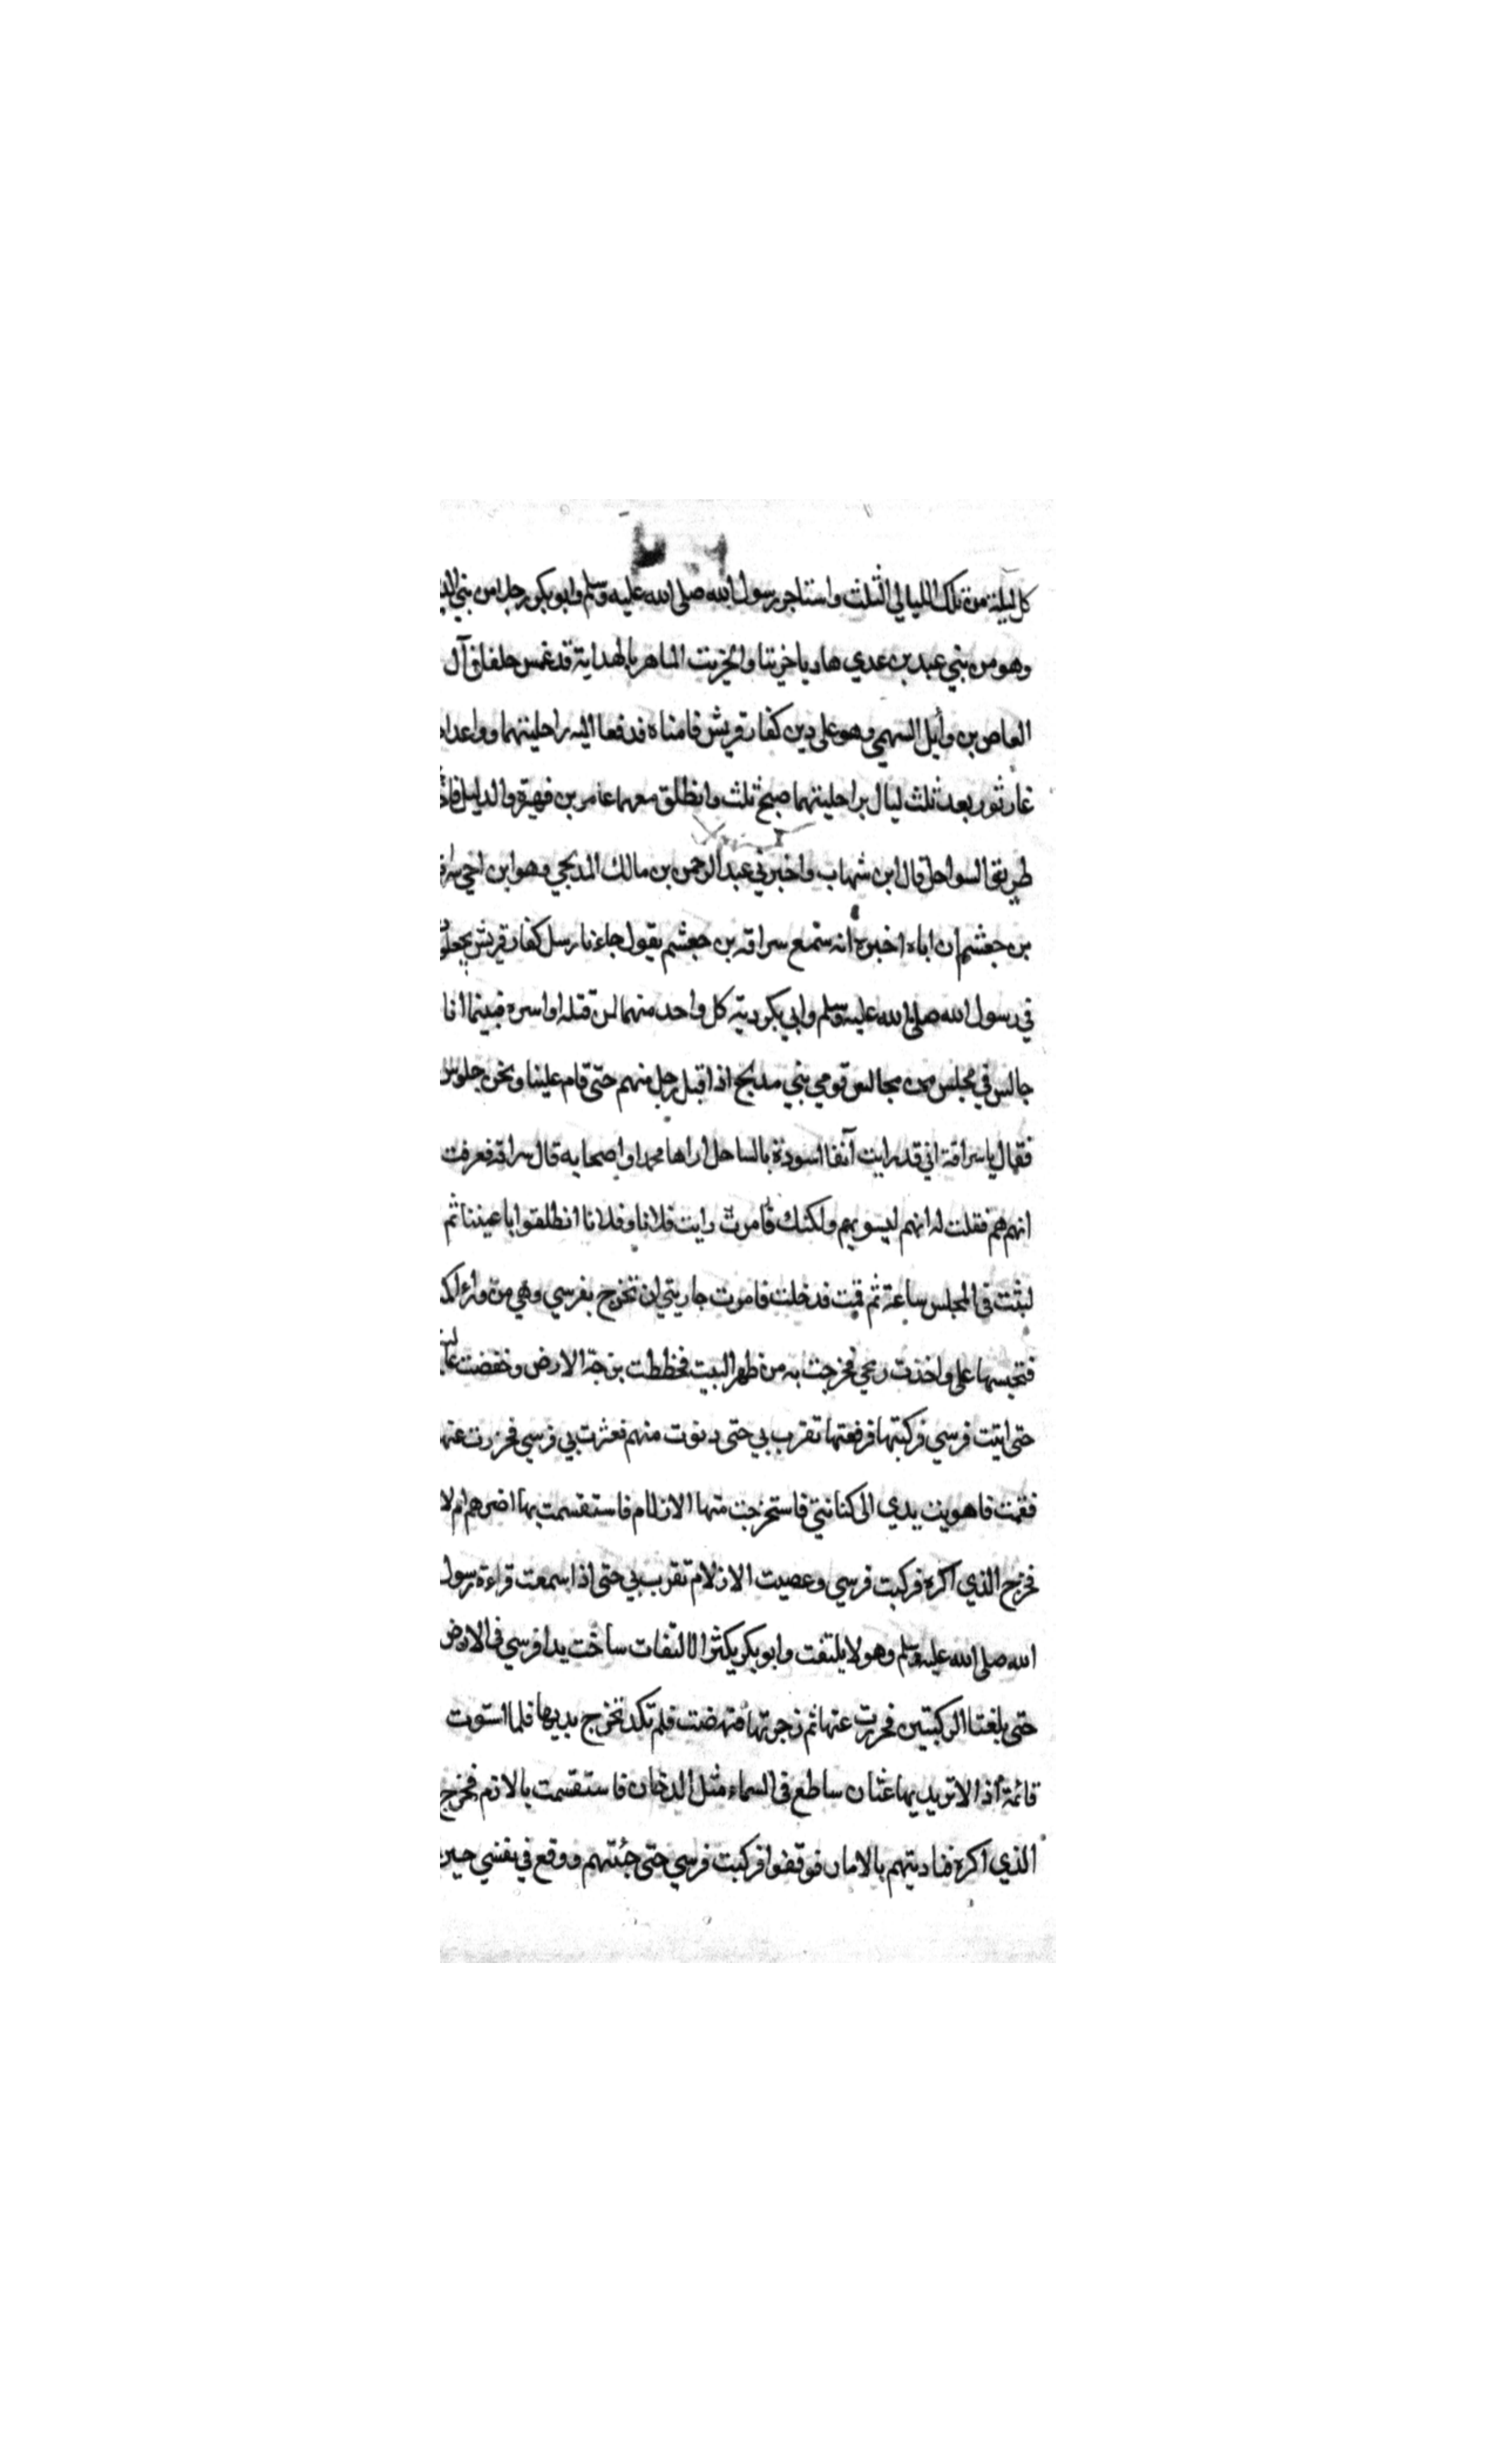 كل ليلة من تلك الليالي الثلث واستاجر رسول الله صلى الله عليه وسلم وابو بكر رجلا من بني
وهو من بني عبد بن عدي هاديا خريتا والخريت الماهر بالهداية قد غمس حلفا في آل
العاص بن وائل السهمي وهو على دين كفار قريش فامناه فدفعا اليه راحلتيهما وواعداه
غار ثور بعد ثلث ليال براحلتيهما صبح ثلث وانطلق معهما عامر بن فهيرة والدليل
طريق السواحل قال ابن شهاب واخبرني عبد الرحمن بن مالك المدلجي وهو ابن اخي
بن جعشم ان اباه اخبره انه سمع سراقه بن جعشم يقول جاءنا رسل كفار قريش يجعلون
في رسول الله صلى الله عليه وسلم وابي بكر دية كل واحد منهما لمن قتله او اسره فبينما انا
جالس في مجلس من مجالس قومي بني مدلج اذ اقبل رجل منهم حتى قام علينا ونحن جلوس
فقال يا سراقة اني قد رايت آنفا اسودة بالساحل اراها محمدا واصحابه قال سراقه فعرفت
انهم هم فقلت له انهم ليسو بهم ولكنك رايت فلانا وفلانا انطلقوا باعيننا ثم
لبثت في المجلس ساعة ثم قمت فدخلت فامرت جاريتي ان تخرج بفرسي وهي من وراء
فتحبسها على واخذت رمحي فخرجت به من ظهر البيت فخططت بزجة الارض وخفضت
حتى اتيت فرسي فركبتها فرفعتها تقرب بي حتى دنوت منهم فعثرت بي فرسي فخررت عنها
فقمت فاهويت يدي الى كنانتي فاستخرجت منها الازلام فاستقسمت بها اضرهم ام لا
فخرج الذي اكره فركبت فرسي وعصيت الازلام تقرب بي حتى اذا سمعت قراءة رسول
الله صلى الله عليه وسلم وهو لا يلتفت وابو بكر يكثر الالتفات ساخت يدا فرسي في الارض
حتى بلغتا الركبتين فخررت عنها ثم زجرتها فنهضت فلم تكد تخرج يديها فلما استوت
قائمة اذا لاثر يديها عثان ساطع في السماء مثل الدخان فاستقسمت بالازلم فخرج
الذي اكره فناديتهم بالامان فوقفوا فركبت فرسي حتى جئتهم ووقع في نفسي حين